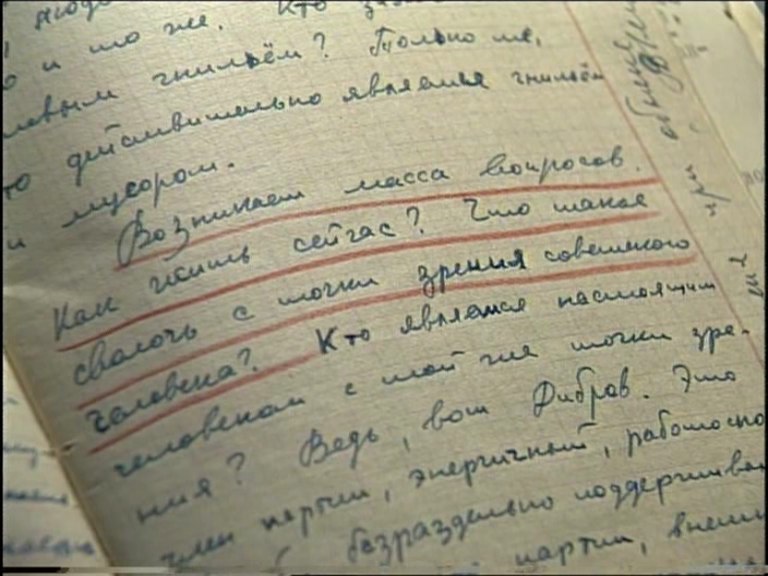 и то же. Кто
гнильём? Только те,
действительно является гнильём
и мусором.
Возникает масса вопросов.
Как жить сейчас? Что такое
сволочь с точки зрения советского
человека? Кто является настоящим
человеком с той же точки зре-
ния? Ведь, вот Дибров. Это
член партии, энергичный, работоспо
безраздельно поддержива
партии, внеш